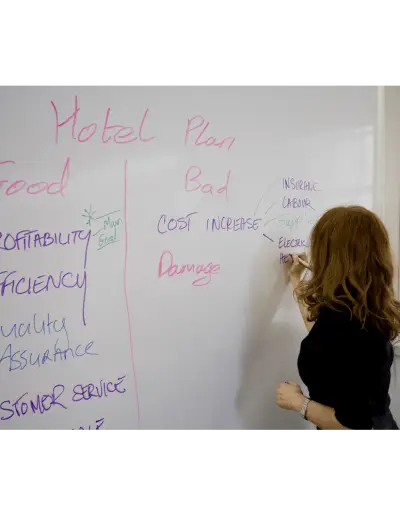 Hotel Plan
Good
Bad
OFITABILITY
Main
Goal
FICIENCY
uality
Assurance
STOMER SERVICE
COST INCREASE
INSURANE
LABOUR
ELECTRIC
Damage